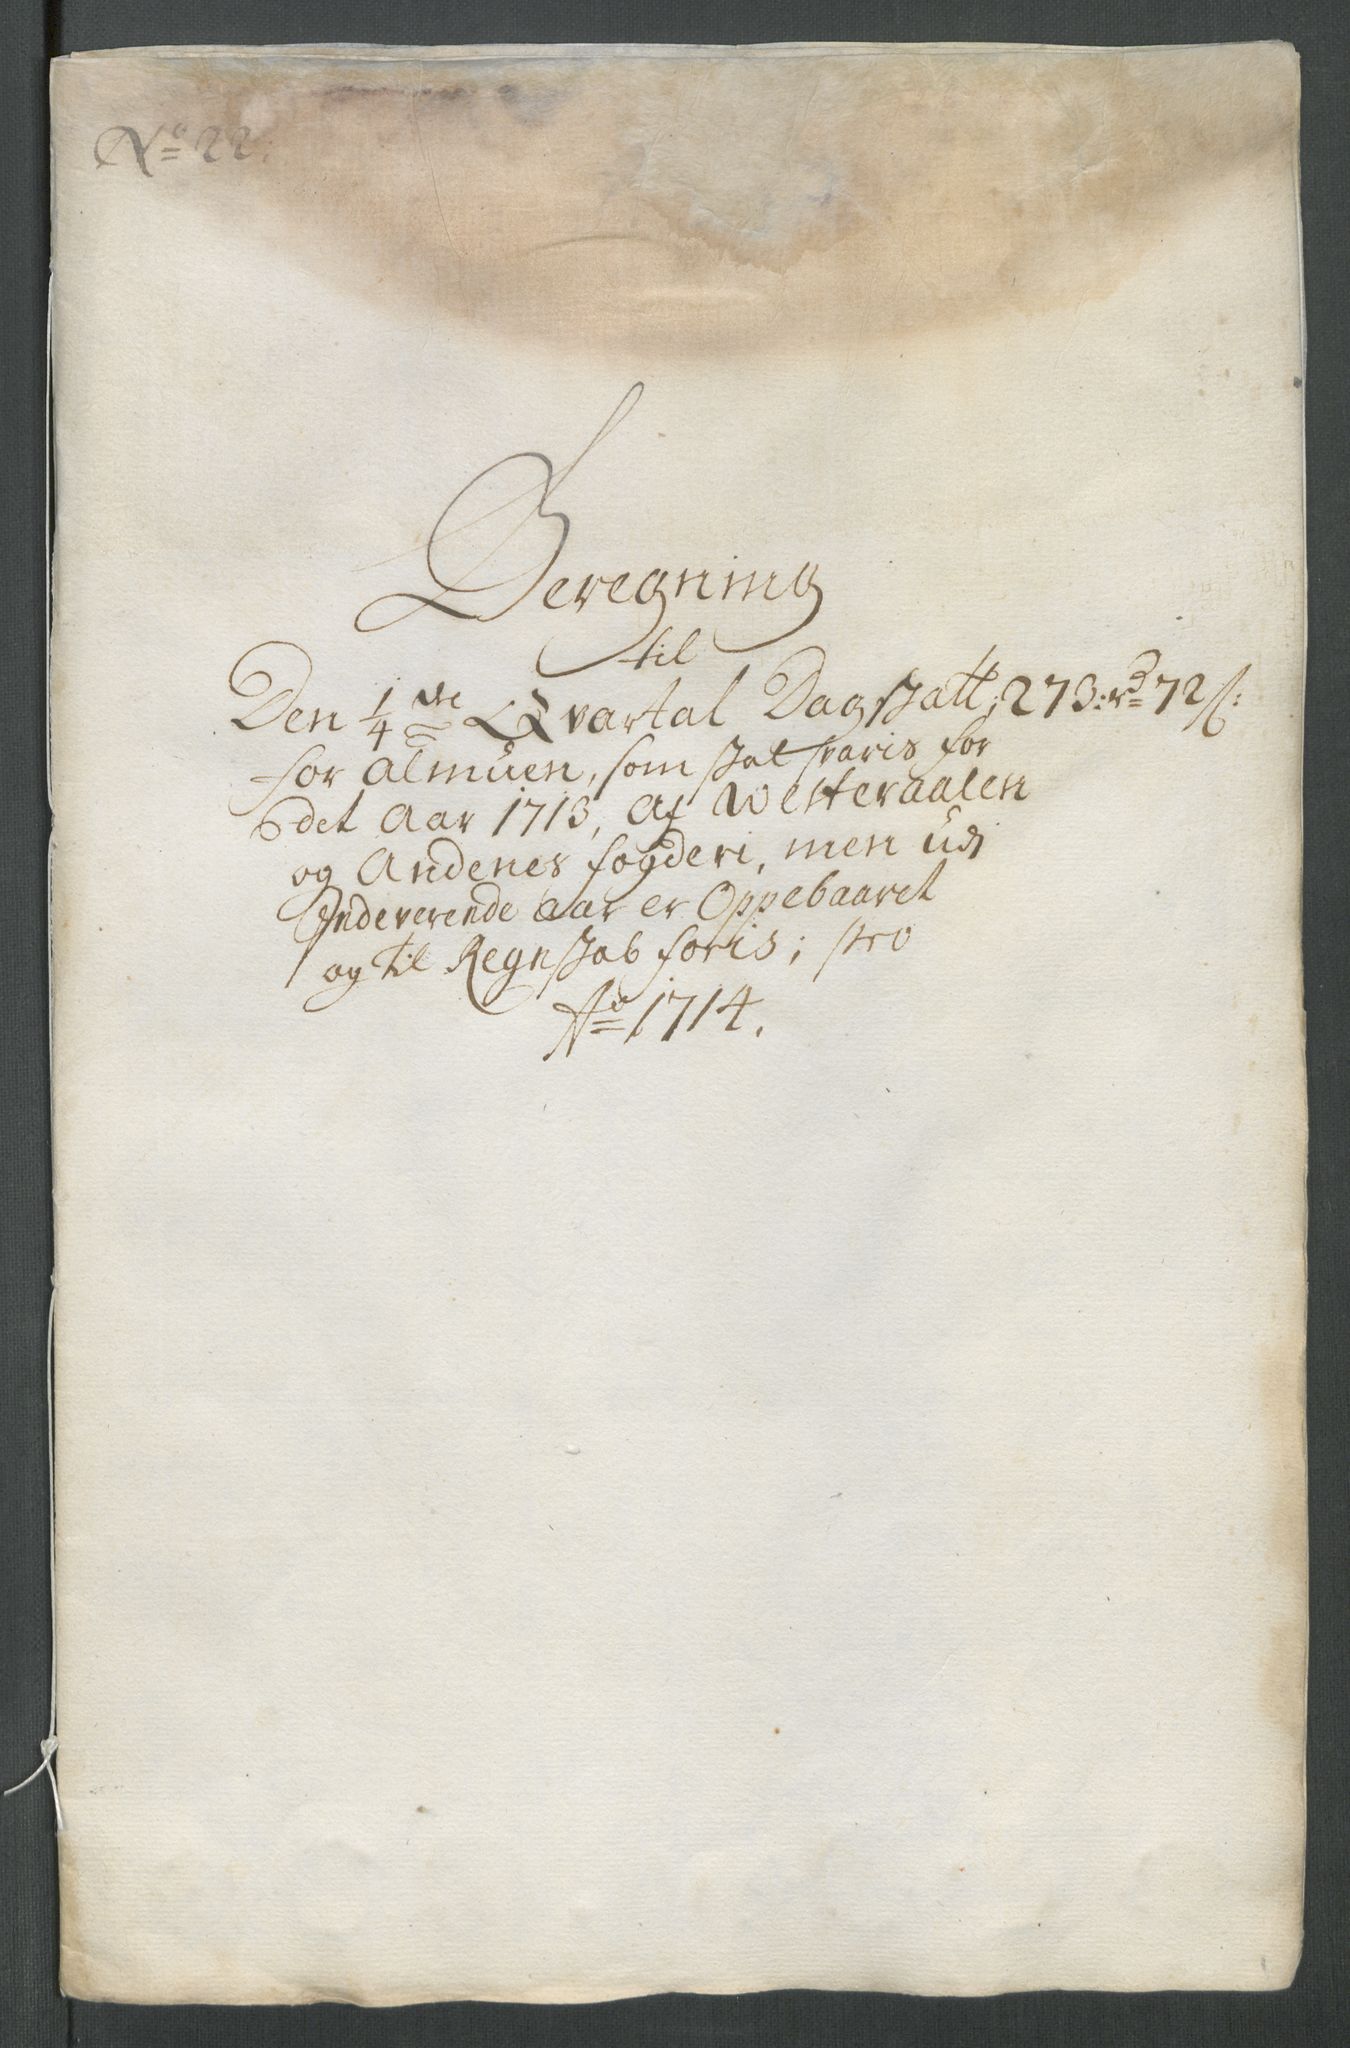 No 22:
Beregning
til
Den 1/4 de Qvartal Dagskatt, 273: rd 72 s:
for Almuen, som skal svaris for
det Aar 1713, af Westeraalen
og Andenes fogderi, men udi
Indeverende Aar er Oppebaaret
og til Regnskab føris; pro
Ao 1714.